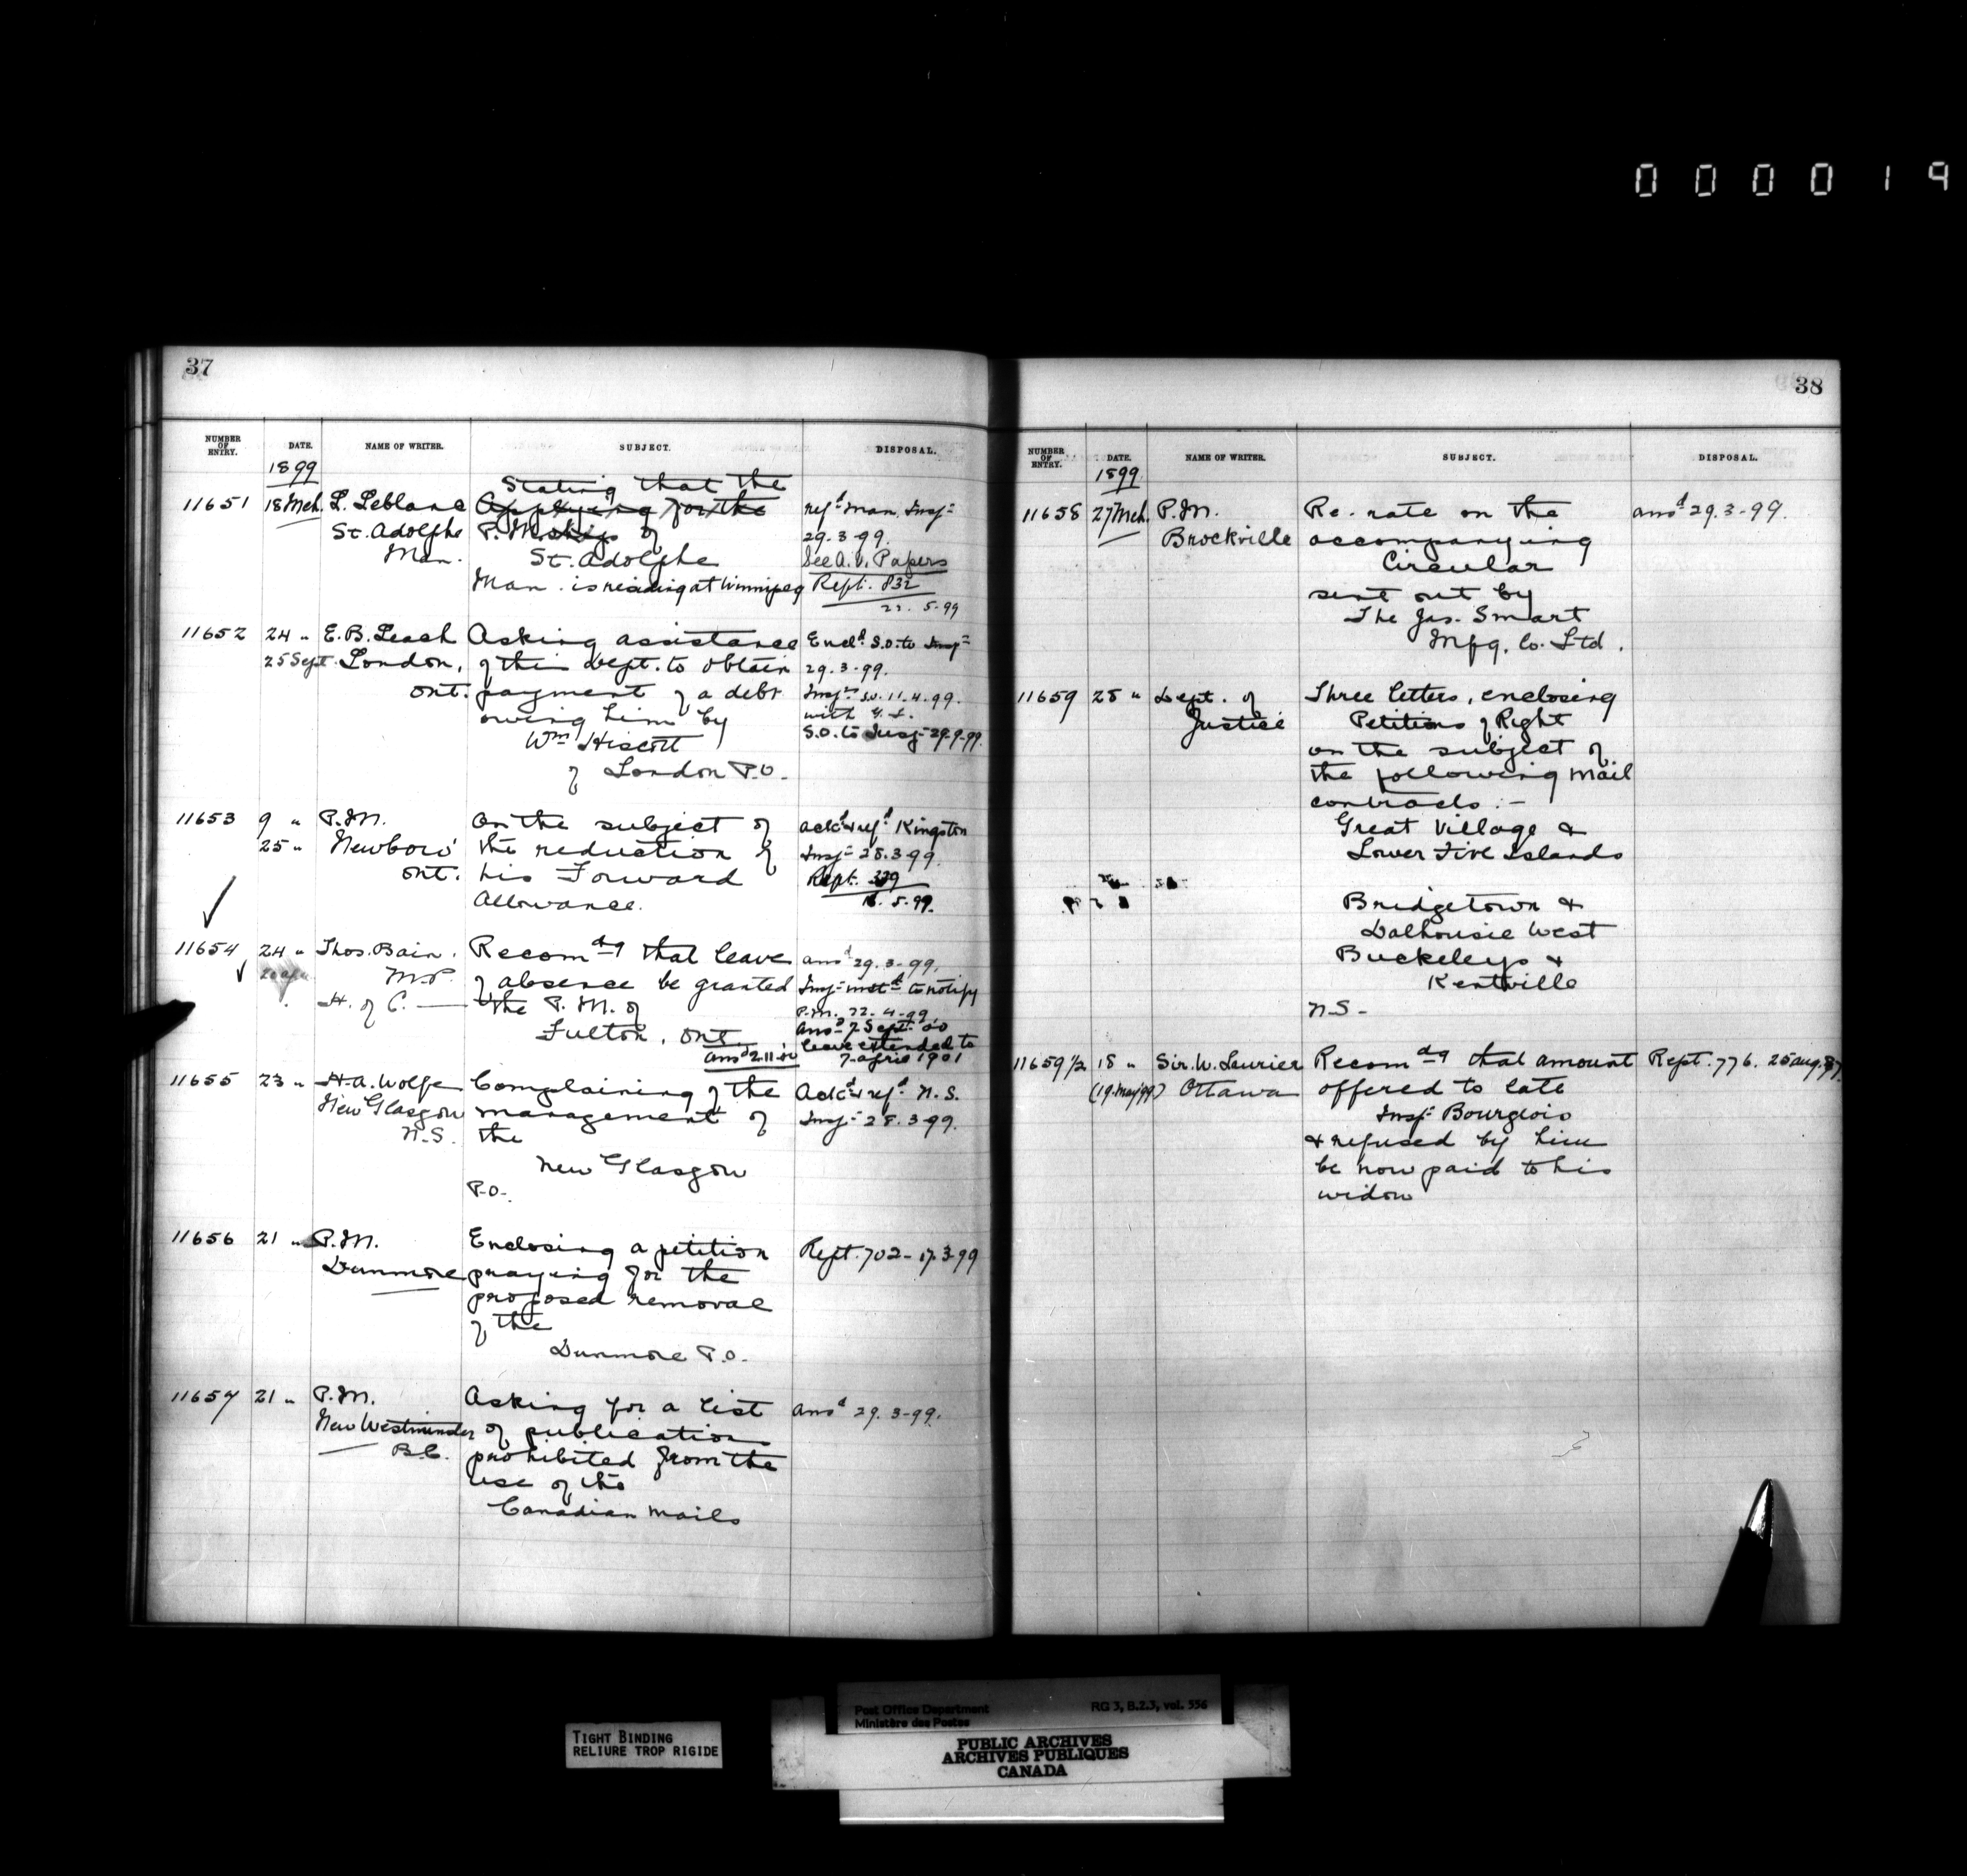 000019
37
NUMBER OF ENTRY. DATE. NAME OF WRITER. SUBJECT. DISPOSAL.
1899
Stating that the
11651 18 Mch. L. Leblanc Applying for the refd Man. Inspr
St. Adolphe P. Mship of 29.3.99.
Man. St. Adolphe See A.V. Papers
Man. is residing at Winnipeg Rept. 832
22. 5-99
11652 24 " E. B. Leach Asking assistance Encld S.O. to Inspr
25 Sept. London, of this Dept. to obtain 29.3-99.
Ont. payment of a debt Inspr 11.4.99.
owing him by with
Wm Hiscott S.O. to Inspr 29-9-99.
of London P.O.
11653 9 " P.M. On the subject of ackd & refd Kingston
25 " Newboro' the reduction of Inspr 28.3-99.
Ont. his Forward Rept. 339
Allowance. 16. 5.99.
11654 24 " Thos. Bain. Recomdg that leave ansd 29.3-99.
M.P. of absence be granted Inspr instd to notify
H. of C. — the P. M. of P.M. 22-4-99
Fulton, Ont. Ansd 7 Sept. 00
ansd 2-11-00 leave extended to
7-april 1901
11655 23 " H. A. Wolfe Complaining of the Ackd & refd N.S.
New Glasgow management of Inspr 28.3-99.
N.S. the
New Glasgow
P.O.
11656 21 " P.M. Enclosing a petition Rept. 702- 17.3-99
Dunmore praying for the
proposed removal
of the
Dunmore P.O.
11657 21 " P.M. Asking for a list ansd 29.3-99.
New Westminster of publications
B.C. prohibited from the
use of the
Canadian Mails
38
NUMBER OF ENTRY. DATE. NAME OF WRITER. SUBJECT. DISPOSAL.
1899
11658 27 Mch. P.M. Re. rate on the ansd 29.3-99.
Brockville accompanying
Circular
sent out by
The Jas. Smart
Mfg. Co. Ltd.
11659 28 " Dept. of Three letters, enclosing
Justice Petitions of Right
on the subject of
the following Mail
contracts :-
Great Village &
Lower Five Islands
Bridgetown &
Dalhousie West
Buckeleys &
Kentville
N.S.
11659½ 18 " Sir. W. Laurier Recomdg that amount Rept. 776. 25 Aug. 87.
(19. May 99) Ottawa offered to late
Inspr Bourgeois
& refused by him
be now paid to his
widow
TIGHT BINDING
RELIURE TROP RIGIDE
Post Office Department RG 3, B.2.3, vol. 556
Ministère des Postes
PUBLIC ARCHIVES
ARCHIVES PUBLIQUES
CANADA